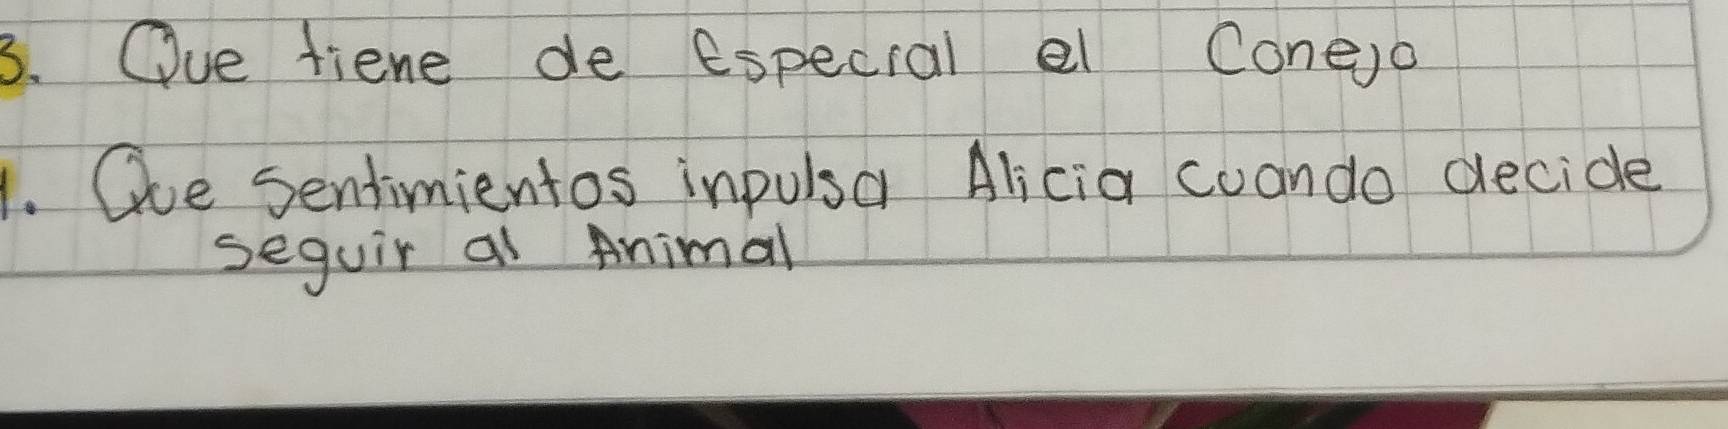 3. Que tiene de Especial el Conejo
1. Que Sentimientos inpulsa Alicia cuando decide
seguir al Animal